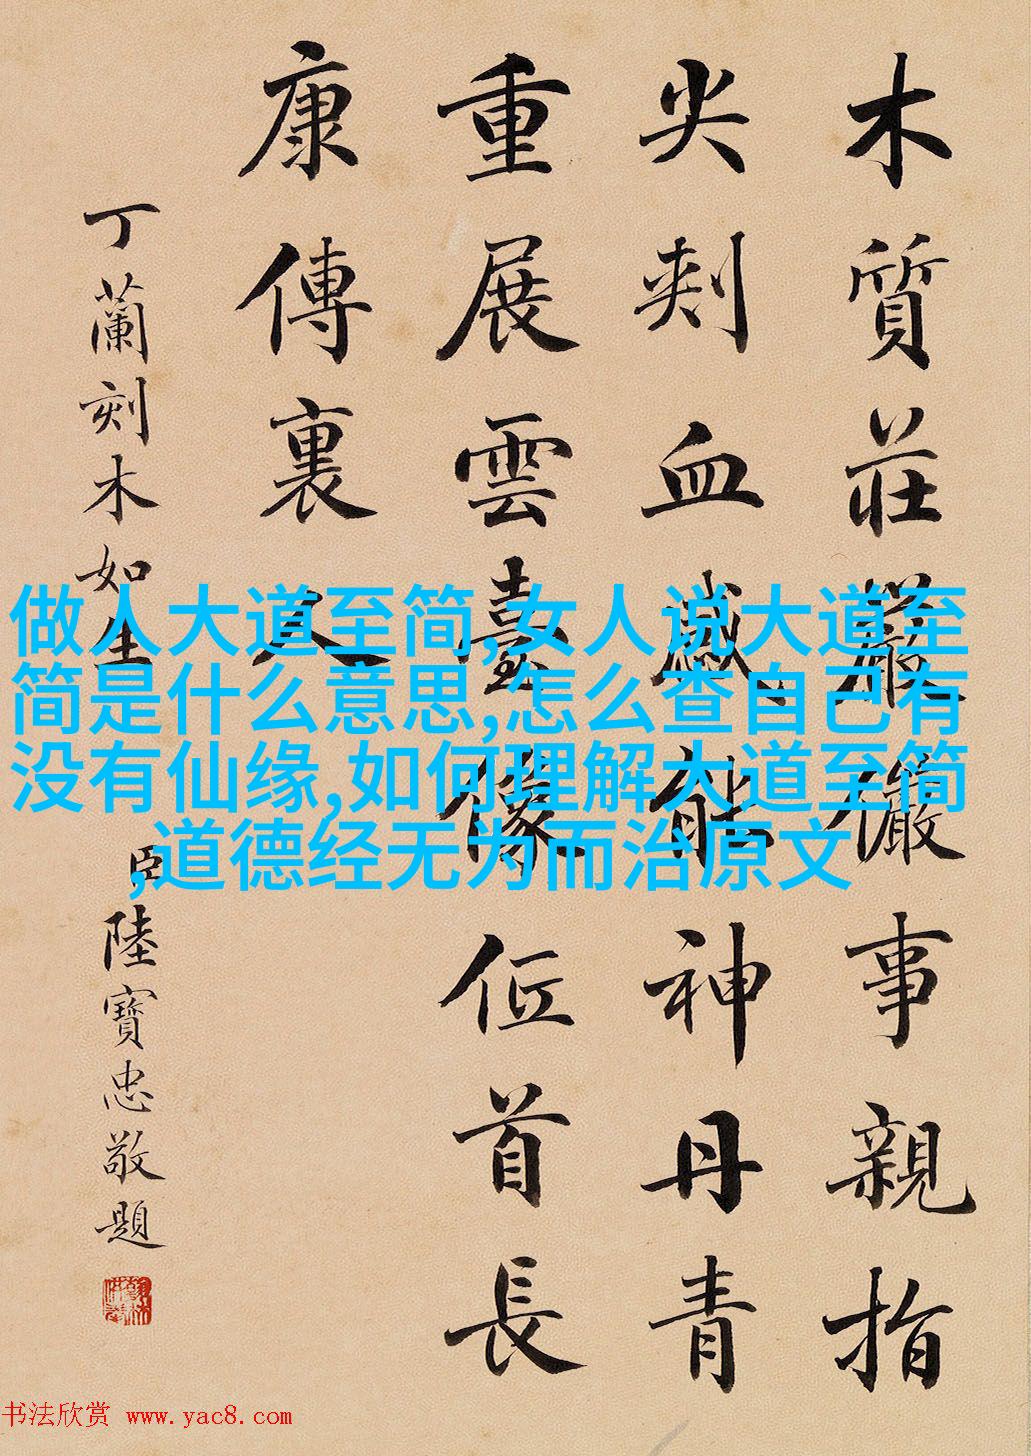 木質莊嚴儼事親指
尖刺血感能神丹青
重展雲臺像位首長
康傳裏人
丁蘭刻木如生
臣陸寶忠敬題
做人大道至简,女人说大道至
简是什么意思,怎么查自己有
没有仙缘,如何理解大道至简
,道德经无为而治原文
书法欣赏 www.yac8.com